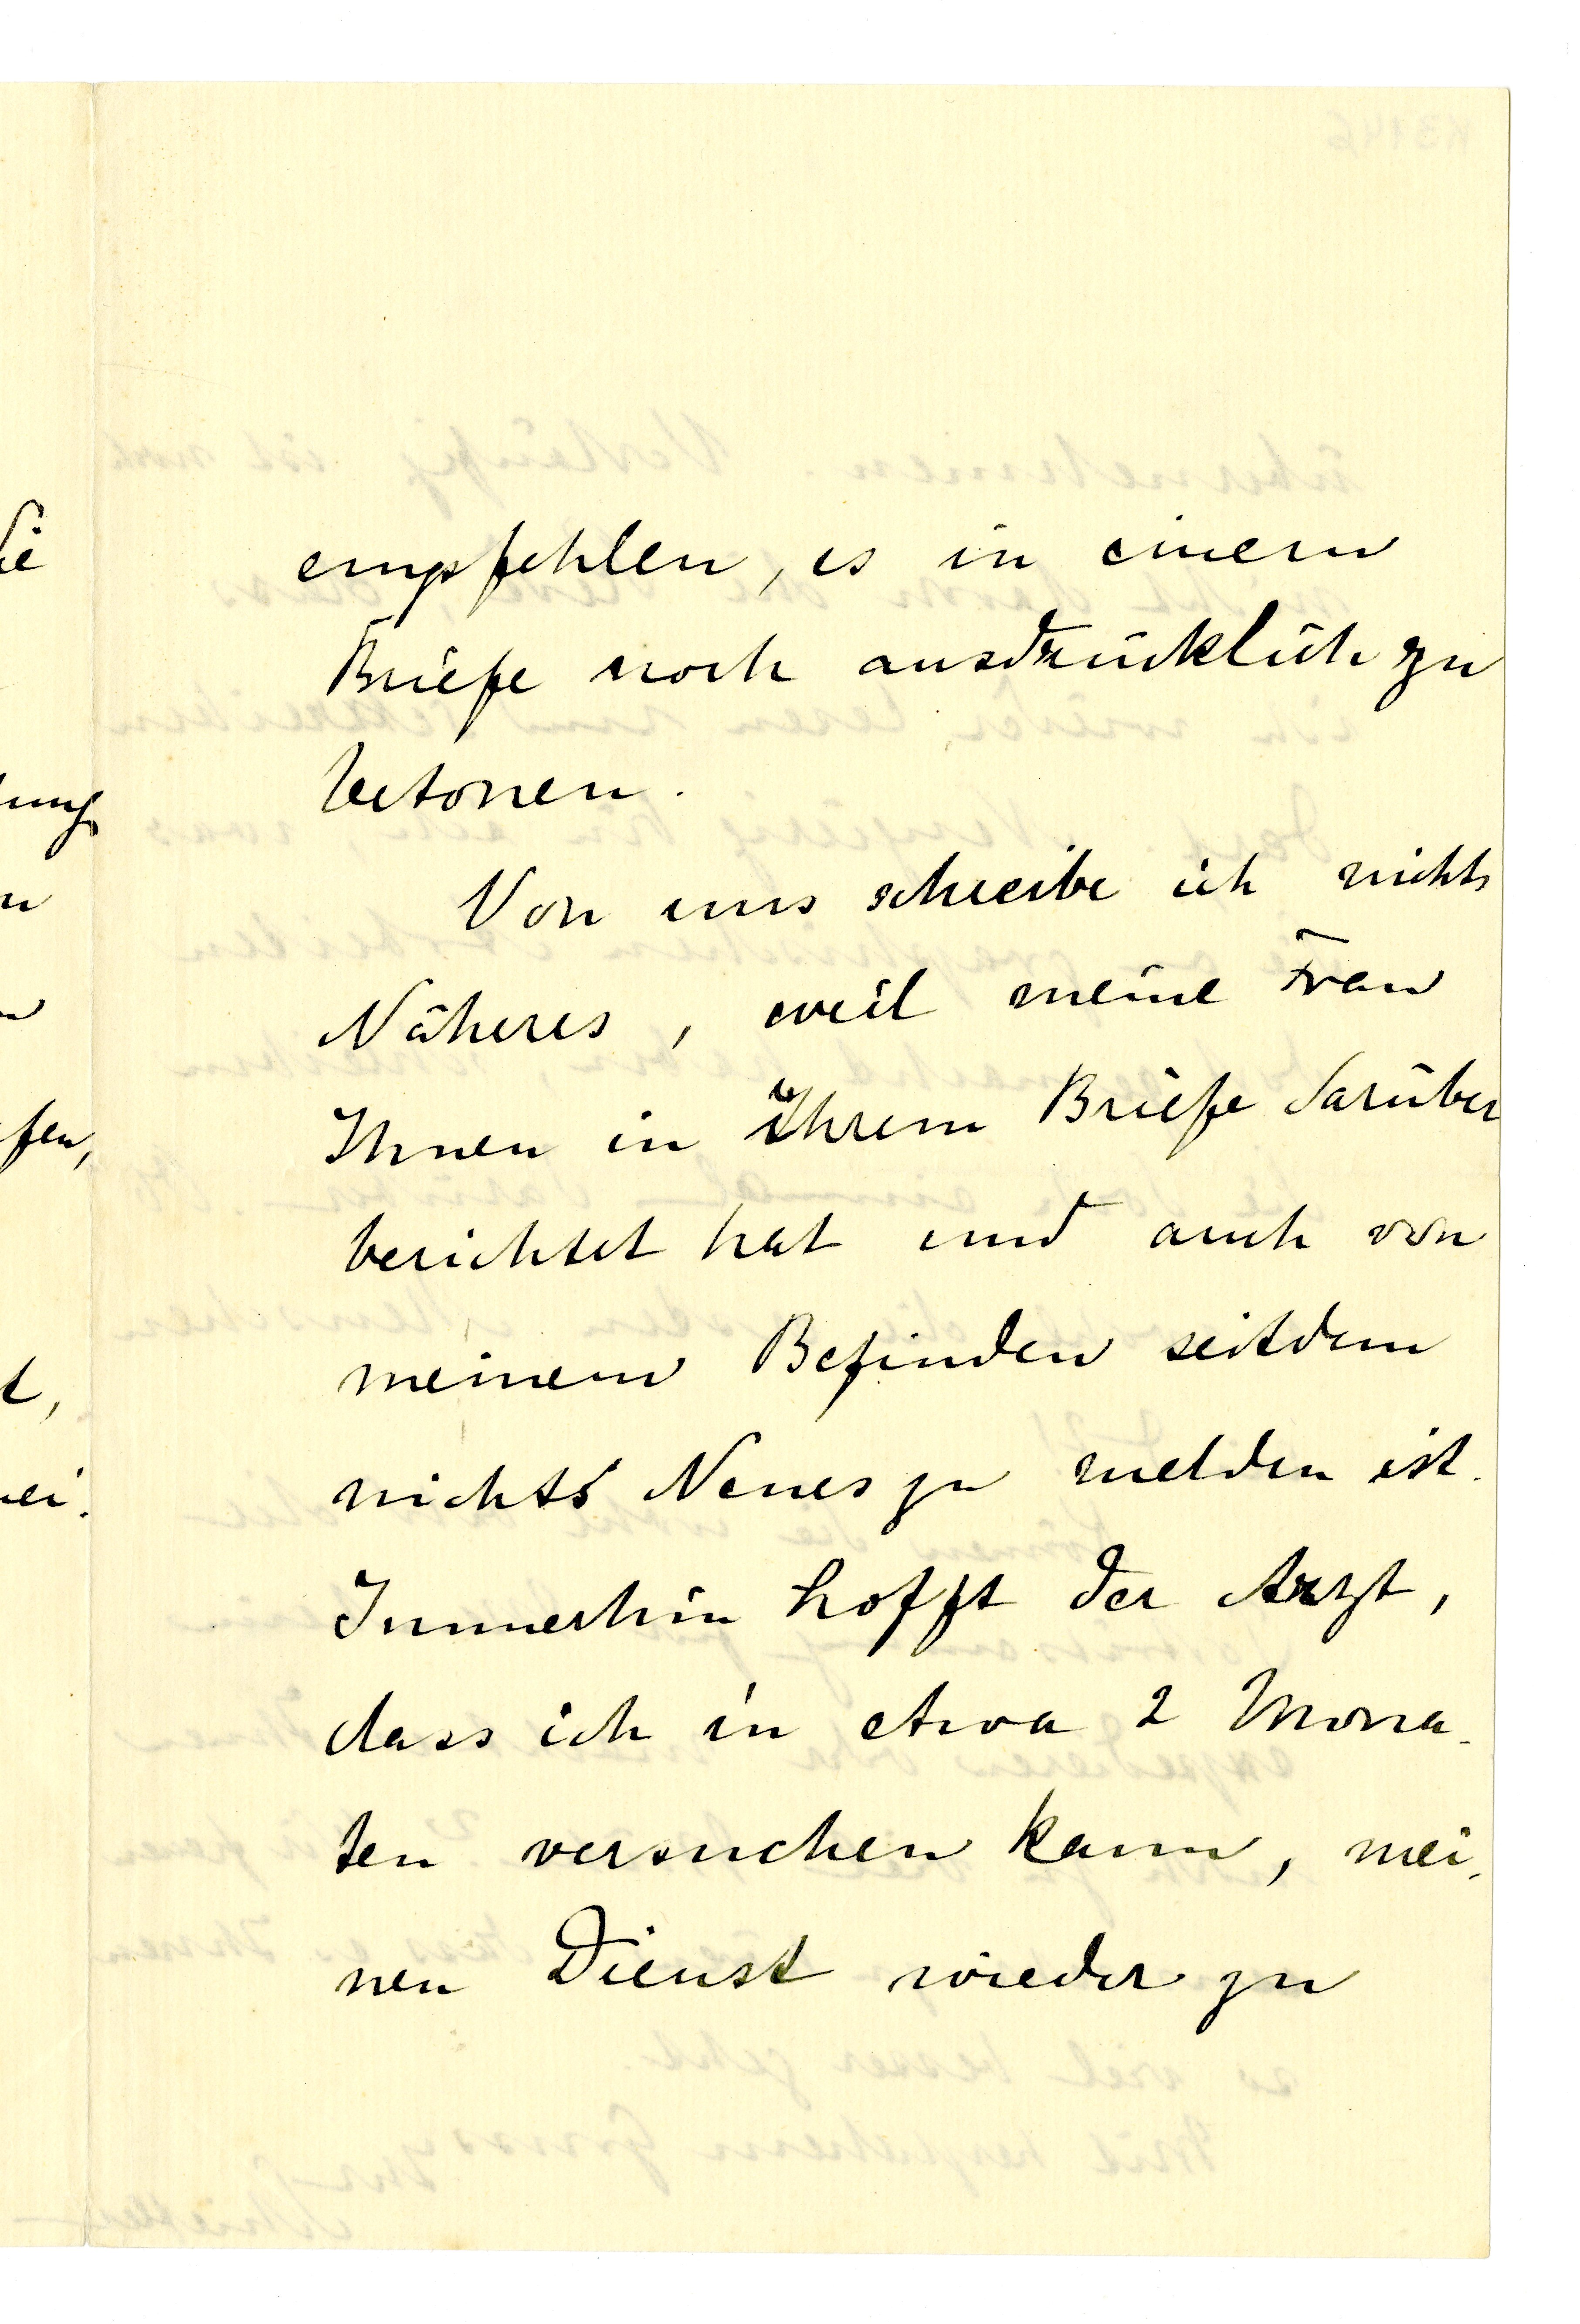 empfehlen, es in einem
Briefe noch ausdrücklich zu
betonen.
Von uns schreibe ich nichts
Näheres, weil meine Frau
Ihnen in ihrem Briefe darüber
berichtet hat und auch von
meinem Befinden seitdem
nichts Neues zu melden ist.
Immerhin hofft der Arzt,
dass ich in etwa 2 Mona-
ten versuchen kann, mei-
nen Dienst wieder zu